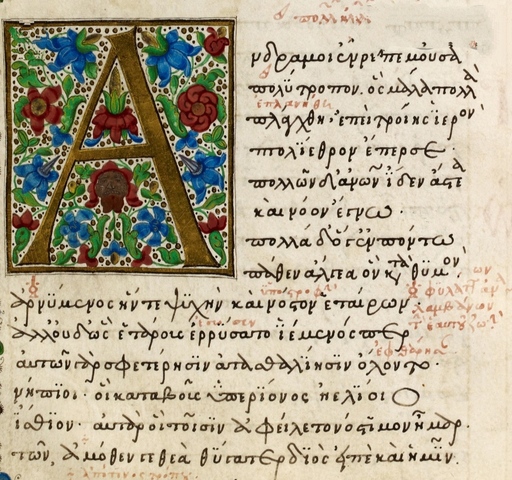 Ανδρα μοι ἔννεπε μοῦσα
πολύτροπον. ὃς μάλα πολλὰ
ἐπλανήθη
πλάγχθη· ἐπεὶ τροίης ἱερὸν
πτολίεθρον ἔπερσε·
πολλῶν δ' ἀνῶν ἴδεν ἄστεα
καὶ νόον ἔγνω·
πολλὰ δ' ὅγ' ἐν πόντω
πάθεν ἄλγεα ὃν κτὰ θυμὸν
ἀρνύμενος ἥν τε ψυχὴν καὶ νόστον ἑταίρων·
ἀλλ' οὐδ' ὣς ἑτάρους ἐρρύσατο ἱέμενός περ
αὐτῶν γὰρ σφετέρησιν ἀτασθαλίησιν ὄλοντο·
νήπιοι· οἳ κατὰ βοῦς ὑπερίονος ἠελίοιο
ἤσθιον· αὐτὰρ ὁ τοῖσιν ἀφείλετο νόστιμον ἦμαρ·
τῶν, ἀμόθεν γε θεὰ θύγατερ διὸς εἰπὲ καὶ ἡμῖν.